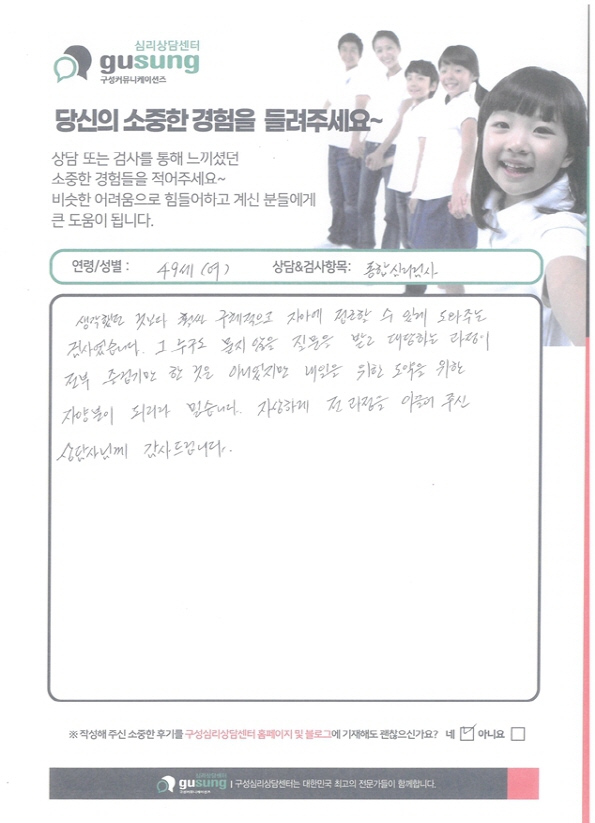 심리상담센터
gusung
구성커뮤니케이션즈
당신의 소중한 경험을 들려주세요~
상담 또는 검사를 통해 느끼셨던
소중한 경험들을 적어주세요~
비슷한 어려움으로 힘들어하고 계신 분들에게
큰 도움이 됩니다.
연령/성별 : 49세 (여) 상담&검사항목: 통합심리검사
생각했던 것보다 훨씬 구체적으로 자아에 접근할 수 있게 도와주는
검사였습니다. 그 누구도 묻지 않을 질문을 받고 대답하는 과정이
전부 즐겁기만 한 것은 아니었지만 내일을 위한 도약을 위한
자양분이 되리라 믿습니다. 자상하게 전 과정을 이끌어 주신
상담사님께 감사드립니다.
※ 작성해 주신 소중한 후기를 구성심리상담센터 홈페이지 및 블로그에 기재해도 괜찮으신가요? 네 아니요
심리상담센터
gusung
구성커뮤니케이션즈
구성심리상담센터는 대한민국 최고의 전문가들이 함께합니다.